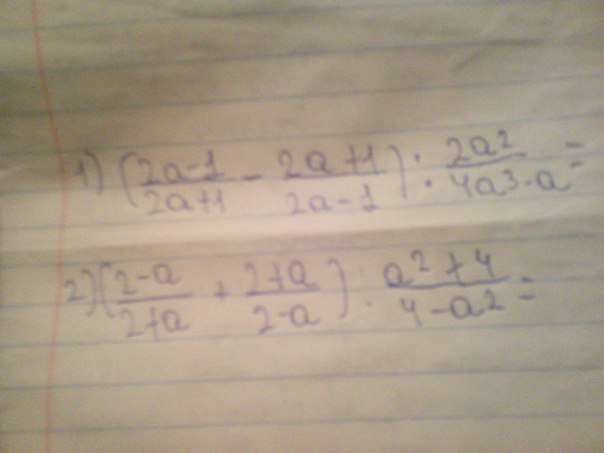 1) (2a-1/2a+1 - 2a+1/2a-1) : 2a²/4a³-a =
2) (2-a/2+a + 2+a/2-a) : a²+4/4-a² =